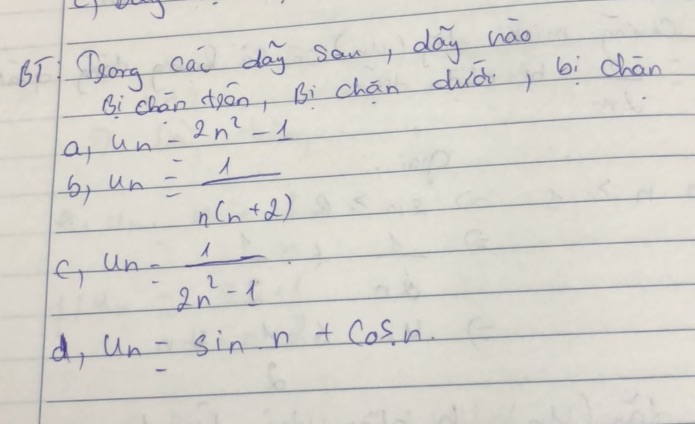 BT: Trong các dãy sau, dãy nào
Bị chặn trên, Bị chặn dưới, bị chặn
a, un = 2n² - 1
b, un = 1/n(n+2)
c, un = 1/2n² - 1
d, un = sin n + cos n.